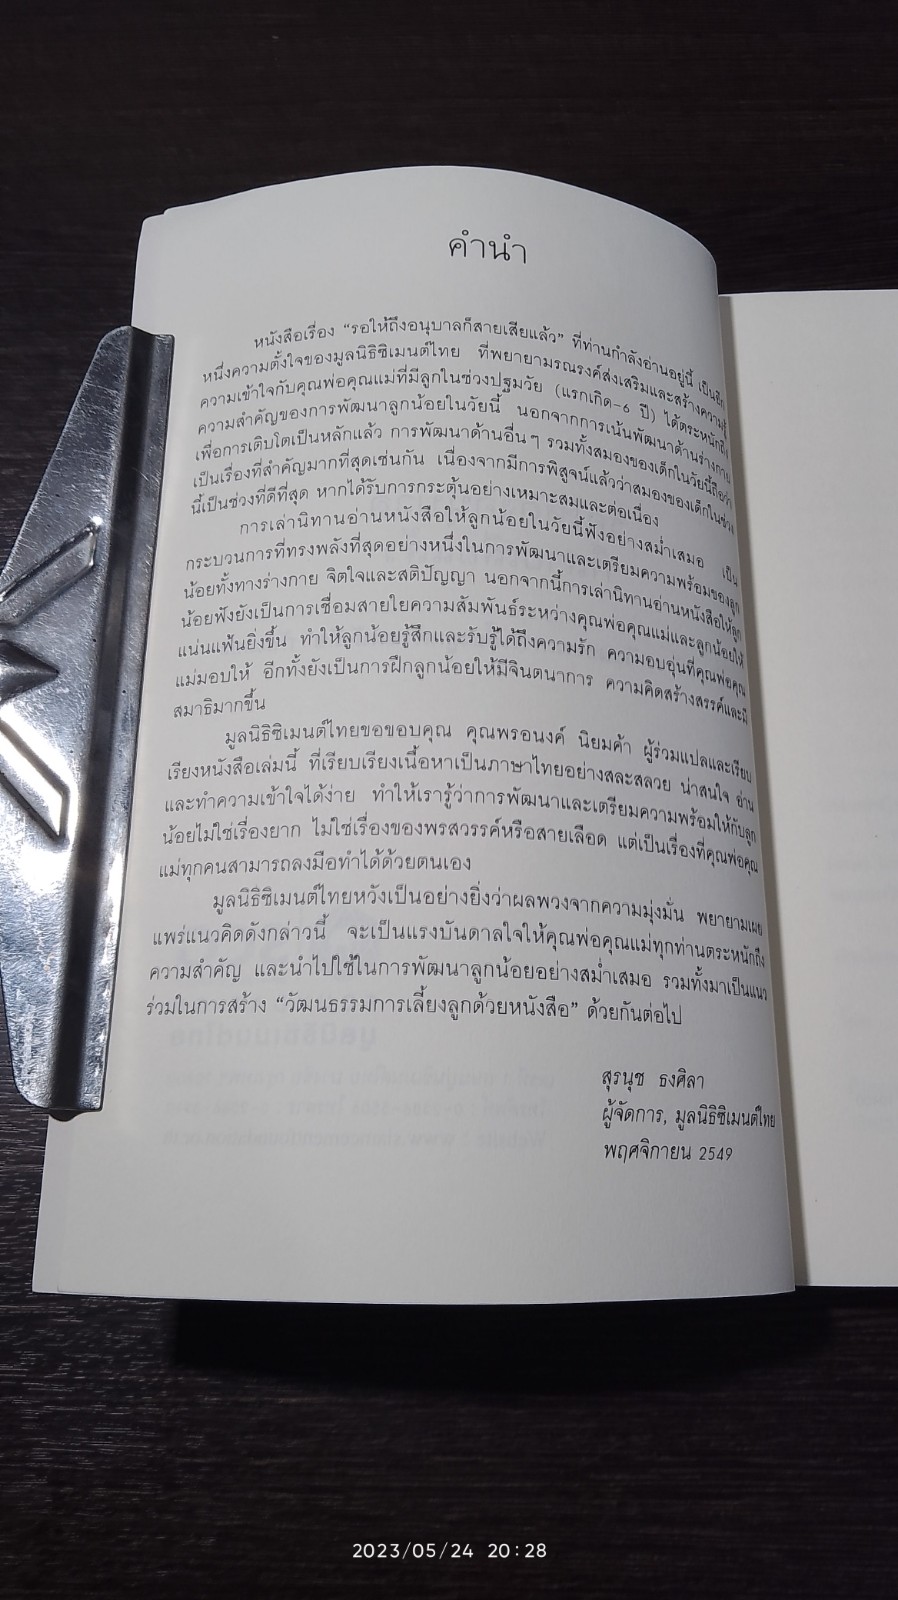 คำนำ
หนังสือเรื่อง “รอให้ถึงอนุบาลก็สายเสียแล้ว” ที่ท่านกำลังอ่านอยู่นี้ เป็นอีก
หนึ่งความตั้งใจของมูลนิธิซิเมนต์ไทย ที่พยายามรณรงค์ส่งเสริมและสร้างความรู้
ความเข้าใจกับคุณพ่อคุณแม่ที่มีลูกในช่วงปฐมวัย (แรกเกิด-6 ปี) ได้ตระหนักถึง
ความสำคัญของการพัฒนาลูกน้อยในวัยนี้ นอกจากการเน้นพัฒนาด้านร่างกาย
เพื่อการเติบโตเป็นหลักแล้ว การพัฒนาด้านอื่นๆ รวมทั้งสมองของเด็กในวัยนี้ถือว่า
เป็นเรื่องที่สำคัญมากที่สุดเช่นกัน เนื่องจากมีการพิสูจน์แล้วว่าสมองของเด็กในช่วง
นี้เป็นช่วงที่ดีที่สุด หากได้รับการกระตุ้นอย่างเหมาะสมและต่อเนื่อง
การเล่านิทานอ่านหนังสือให้ลูกน้อยในวัยนี้ฟังอย่างสม่ำเสมอ เป็น
กระบวนการที่ทรงพลังที่สุดอย่างหนึ่งในการพัฒนาและเตรียมความพร้อมของลูก
น้อยทั้งทางร่างกาย จิตใจและสติปัญญา นอกจากนี้การเล่านิทานอ่านหนังสือให้ลูก
น้อยฟังยังเป็นการเชื่อมสายใยความสัมพันธ์ระหว่างคุณพ่อคุณแม่และลูกน้อยให้
แน่นแฟ้นยิ่งขึ้น ทำให้ลูกน้อยรู้สึกและรับรู้ได้ถึงความรัก ความอบอุ่นที่คุณพ่อคุณ
แม่มอบให้ อีกทั้งยังเป็นการฝึกลูกน้อยให้มีจินตนาการ ความคิดสร้างสรรค์และมี
สมาธิมากขึ้น
มูลนิธิซิเมนต์ไทยขอขอบคุณ คุณพรอนงค์ นิยมค้า ผู้ร่วมแปลและเรียบ
เรียงหนังสือเล่มนี้ ที่เรียบเรียงเนื้อหาเป็นภาษาไทยอย่างสละสลวย น่าสนใจ อ่าน
และทำความเข้าใจได้ง่าย ทำให้เรารู้ว่าการพัฒนาและเตรียมความพร้อมให้กับลูก
น้อยไม่ใช่เรื่องยาก ไม่ใช่เรื่องของพรสวรรค์หรือสายเลือด แต่เป็นเรื่องที่คุณพ่อคุณ
แม่ทุกคนสามารถลงมือทำได้ด้วยตนเอง
มูลนิธิซิเมนต์ไทยหวังเป็นอย่างยิ่งว่าผลพวงจากความมุ่งมั่น พยายามเผย
แพร่แนวคิดดังกล่าวนี้ จะเป็นแรงบันดาลใจให้คุณพ่อคุณแม่ทุกท่านตระหนักถึง
ความสำคัญ และนำไปใช้ในการพัฒนาลูกน้อยอย่างสม่ำเสมอ รวมทั้งมาเป็นแนว
ร่วมในการสร้าง “วัฒนธรรมการเลี้ยงลูกด้วยหนังสือ” ด้วยกันต่อไป
สุรนุช ธงศิลา
ผู้จัดการ, มูลนิธิซิเมนต์ไทย
พฤศจิกายน 2549
2023/05/24 20:28